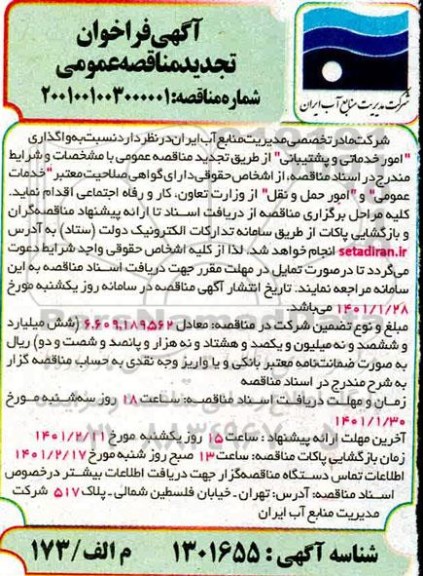 آگهی فراخوان
تجدید مناقصه عمومی
شماره مناقصه: ۲۰۰۱۰۰۱۰۰۳۰۰۰۰۰۱
شرکت مدیریت منابع آب ایران
شرکت مادر تخصصی مدیریت منابع آب ایران در نظر دارد نسبت به واگذاری
"امور خدماتی و پشتیبانی" از طریق تجدید مناقصه عمومی با مشخصات و شرایط
مندرج در اسناد مناقصه، از اشخاص حقوقی دارای گواهی صلاحیت معتبر "خدمات
عمومی" و "امور حمل و نقل" از وزارت تعاون، کار و رفاه اجتماعی اقدام نماید.
کلیه مراحل برگزاری مناقصه از دریافت اسناد تا ارائه پیشنهاد مناقصه‌گران
و بازگشایی پاکات از طریق سامانه تدارکات الکترونیک دولت (ستاد) به آدرس
setadiran.ir انجام خواهد شد. لذا از کلیه اشخاص حقوقی واجد شرایط دعوت
می‌گردد تا در صورت تمایل در مهلت مقرر جهت دریافت اسناد مناقصه به این
سامانه مراجعه نمایند. تاریخ انتشار آگهی مناقصه در سامانه روز یکشنبه مورخ
۱۴۰۱/۱/۲۸ می‌باشد.
مبلغ و نوع تضمین شرکت در مناقصه: معادل ۶.۶۰۹.۱۸۹۵۶۲ (شش میلیارد
و ششصد و نه میلیون و یکصد و هشتاد و نه هزار و پانصد و شصت و دو) ریال
به صورت ضمانت‌نامه معتبر بانکی و یا واریز وجه نقدی به حساب مناقصه گزار
به شرح مندرج در اسناد مناقصه
زمان و مهلت دریافت اسناد مناقصه: ساعت ۱۸ روز سه‌شنبه مورخ
۱۴۰۱/۱/۳۰
آخرین مهلت ارائه پیشنهاد: ساعت ۱۵ روز یکشنبه مورخ
زمان بازگشایی پاکات مناقصه: ساعت ۱۳ صبح روز شنبه مورخ ۱۴۰۱/۲/۱۷
اطلاعات تماس دستگاه مناقصه‌گزار جهت دریافت اطلاعات بیشتر در خصوص
اسناد مناقصه: آدرس: تهران - خیابان فلسطین شمالی - پلاک ۵۱۷ شرکت
مدیریت منابع آب ایران
شناسه آگهی: ۱۳۰۱۶۵۵ م الف/۱۷۳